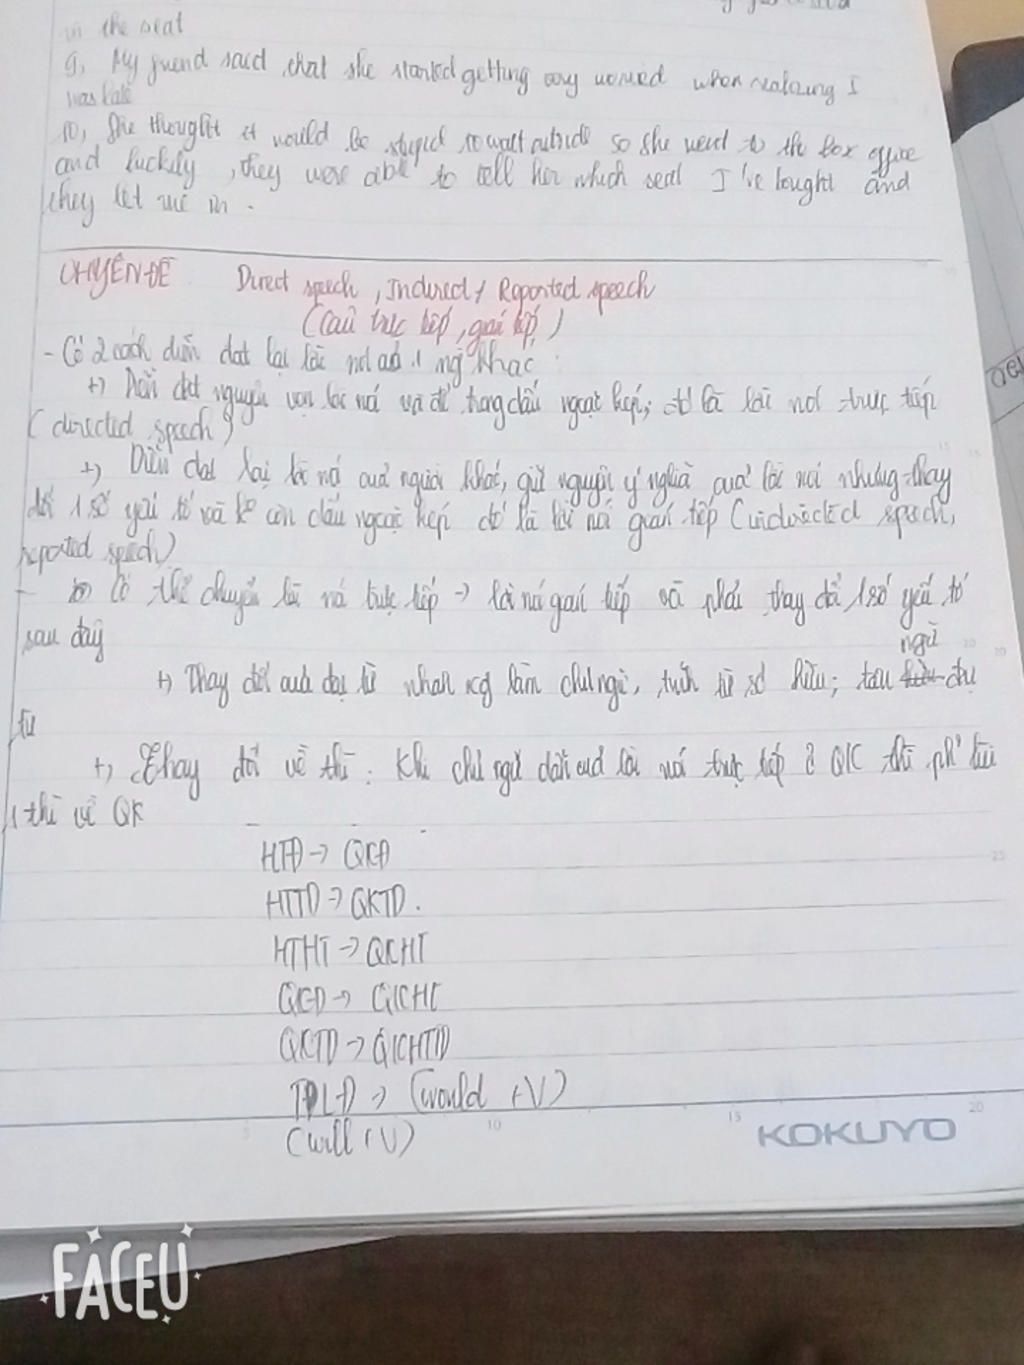 in the seat
9, My friend said that she started getting very worried when realizing I
was late
10, She thought it would be stupid to wait outside so she went to the box office
and luckily, they were able to tell her which seat I've bought and
they let me in.
CHUYÊN ĐỀ Direct speech, Indirect / Reported speech
(Câu trực tiếp, gián tiếp)
- Có 2 cách diễn đạt lại lời nói của 1 ng khác:
+) Diễn đạt nguyên vẹn lời nói và để trong dấu ngoặc kép; đó là lời nói trực tiếp
(directed speech)
+) Diễn đạt lại lời nói của người khác, giữ nguyên ý nghĩa của lời nói nhưng thay
đổi 1 số yếu tố và ko còn dấu ngoặc kép đó là lời nói gián tiếp (indirected speech,
reported speech)
- Có thể chuyển lời nói trực tiếp → lời nói gián tiếp và phải thay đổi 1 số yếu tố
sau đây
ngữ
+) Thay đổi của đại từ nhân xg làm chủ ngữ, tính từ sở hữu; tân đại
từ
+) Thay đổi về thì: Khi chủ ngữ dẫn của lời nói trực tiếp ở QK thì ph lùi
1 thì về QK
HTĐ → QKĐ
HTTD → QKTD.
HTHT → QKHT
QKĐ → QKHT
QKTD → QKHTTD
TLĐ → (would + V)
(will + V)
KOKUYO
FACEU